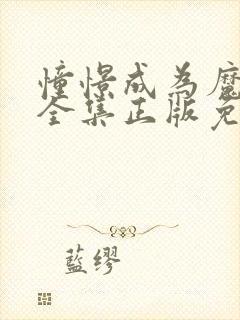 憧憬成为魔
全集正版免
藍缪